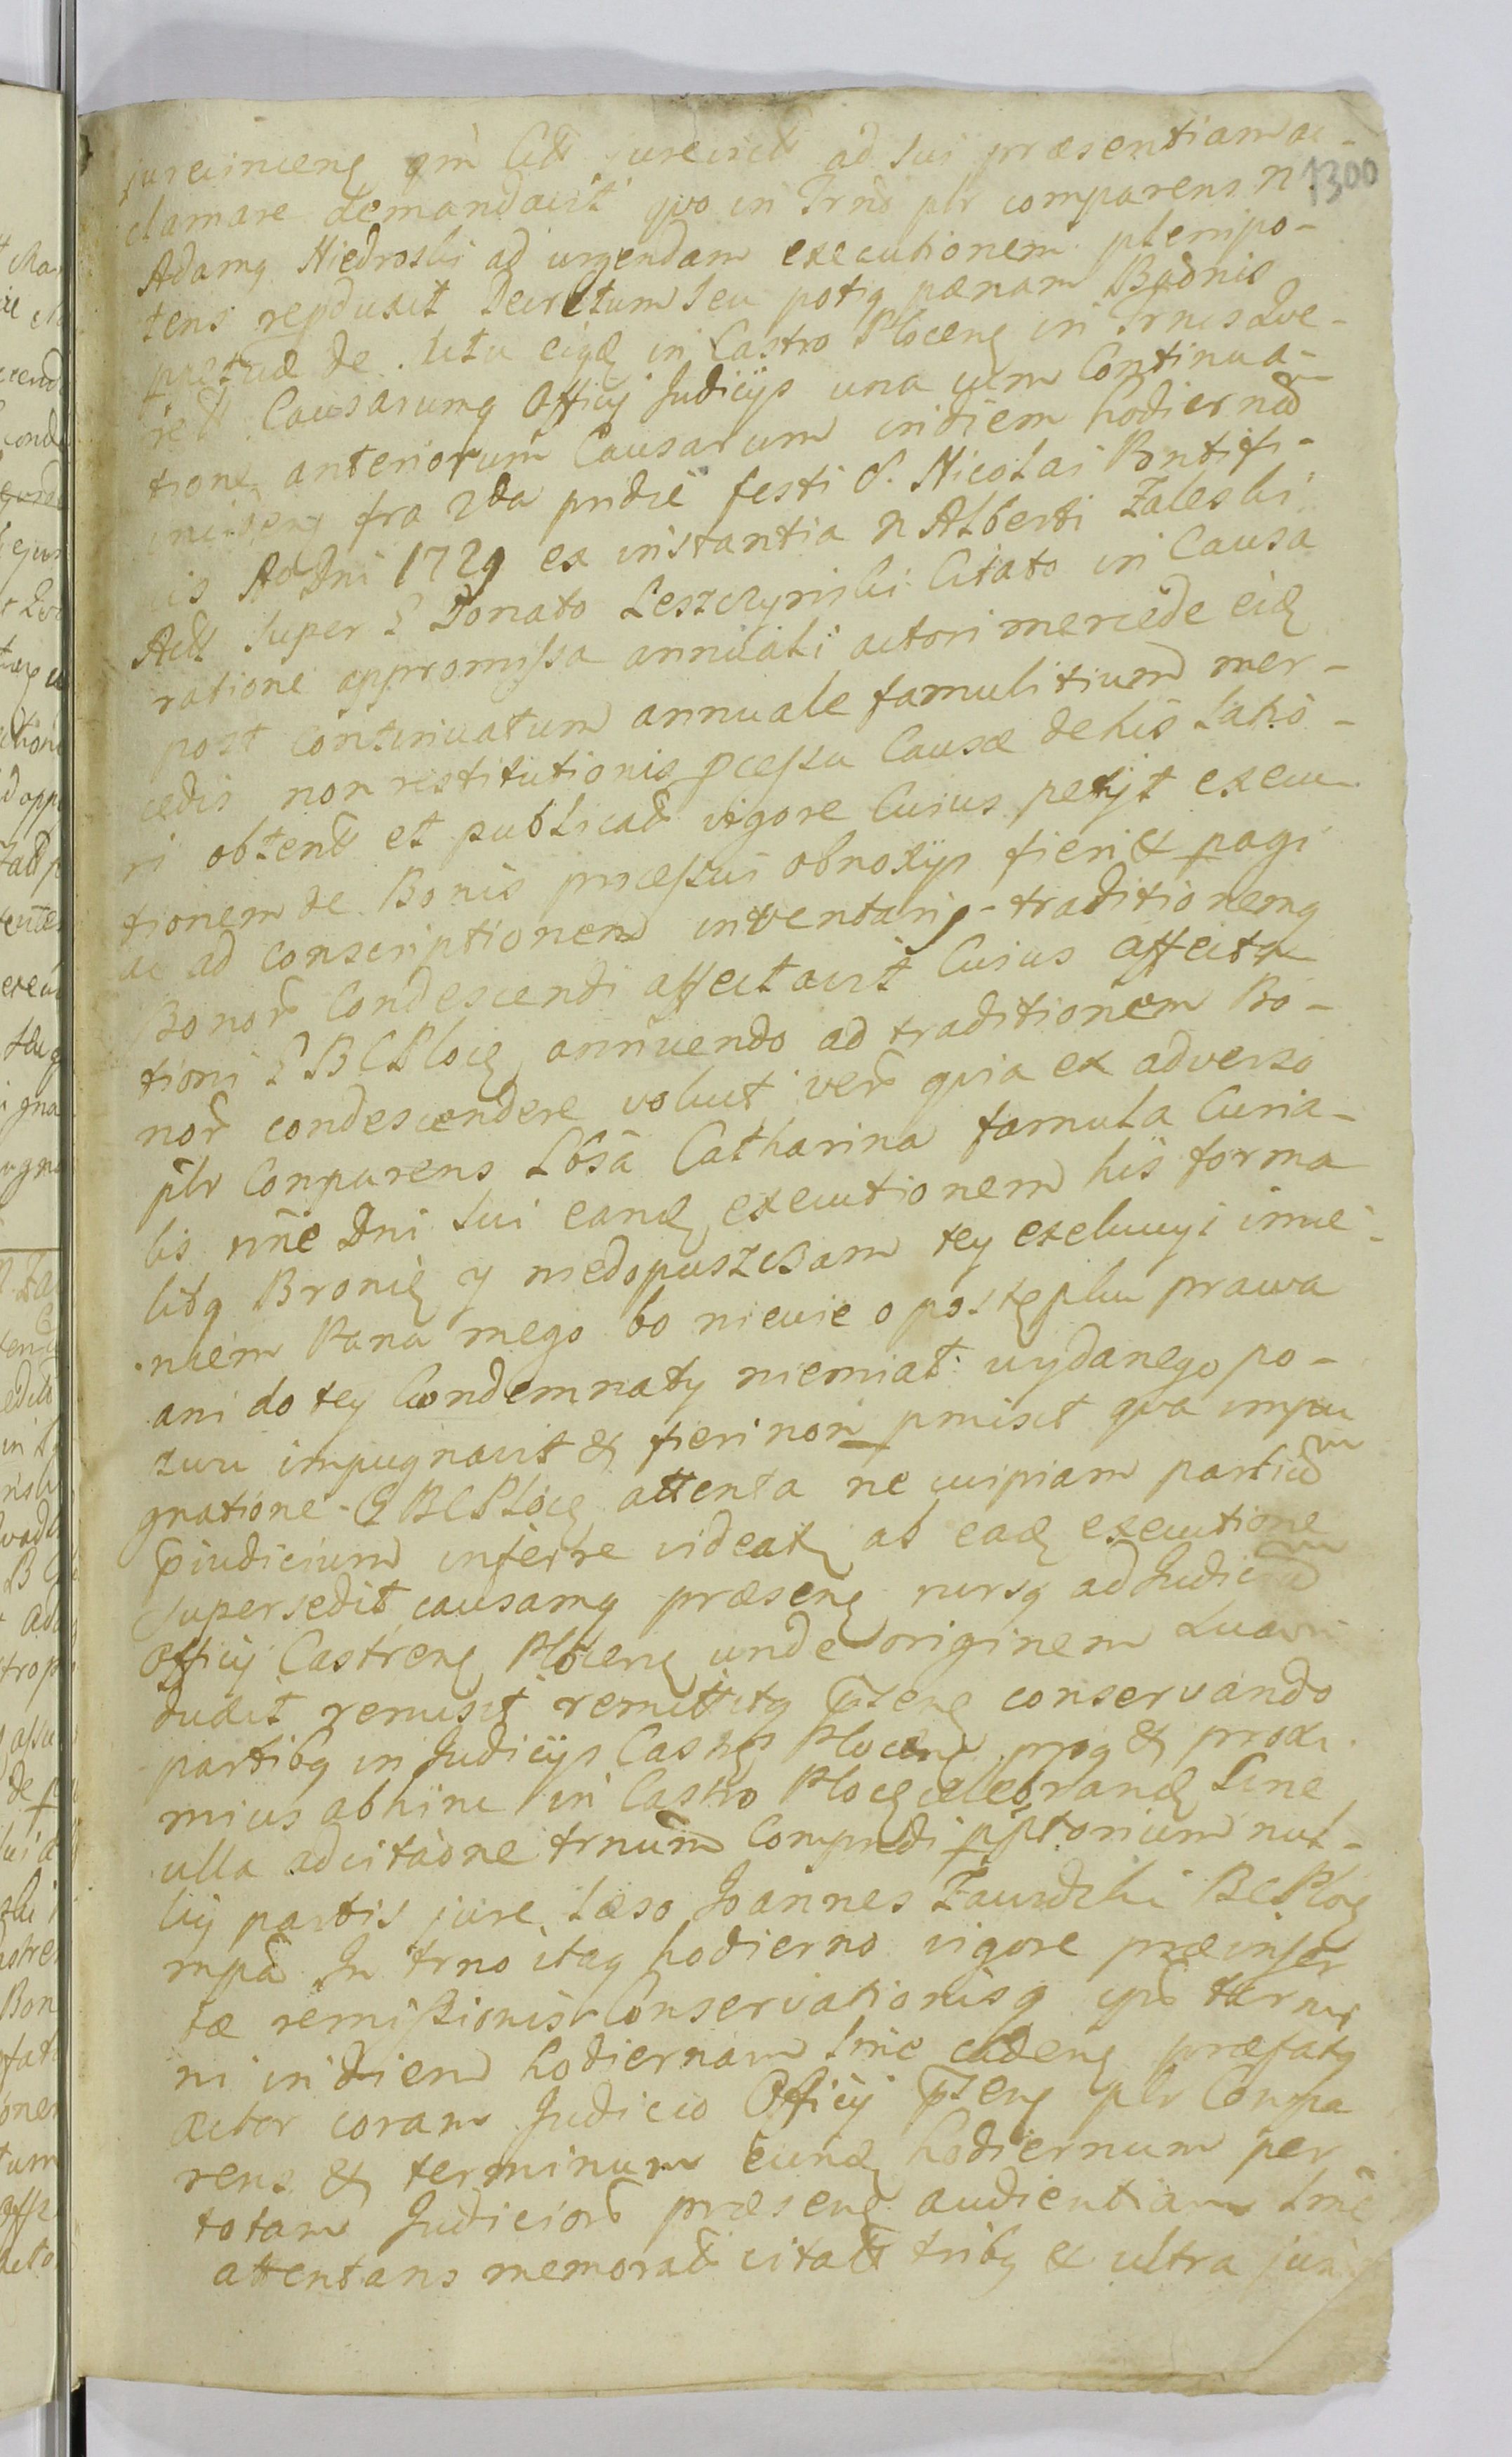 jurecincenę qm Citt jurecict ad sui præsentiam ac-
clamare demandavit quo in Trno plr comparens N 1300
Adamq Niedroski ad urgendam executionem plenipo-
tens repduxit Decretum seu potiq pænam Bannis
ppetuæ de dctu eiqd in Castro Plocenę in Trnis Que-
rell Causarumq Officij Judicijs una cum Continua-
tione anteriorum Causarum in diem hodiernam
inciden fra 2da pridie festi S. Nicolai Pontifi-
cis Ao Dni 1729 ex instantia N Alberti Zaleski
Act super G Donato Leszczynski Citato in Causa
ratione appromissa annuali actori mercede eidę
post continuatum annuale famulitium mer-
cedis non restitutionis pcessu Causæ de his latio-
ri obtent et publicat vigore Cuius petijt execu
tionem de Bonis pncessui obnoxijs fieri & pagi
ac ad conscriptionem inventarij traditionemq
Bonor Condescendi affectavit Cuius affecta
tioni G BCPlocę annuendo ad traditionem Bo-
nor condescendere voluit ver quia ex adverso
plr Comparens Lbsa Catharina famula Curia-
lis nne Dni sui eandę executionem his forma
libq Bronię y niedopuszczam tey exekucyi imie-
niem Pana mego bo niewie o postępku prawa
ani do tey Condemnaty niemiał wydanego po-
zwu impugnavit & fieri non pmisit qva impu
gnatione G BCPlocę attenta ne cuipiam partium
pjudicium inferre videatę ab eadę executione
supersedit causamq præsenę rursq ad Judicium
Officij Castrenę Plocenę unde originem suam
duxit remisit remittitq pzenę conservando
partibq in Judicijs Castrs Plocenę proq & proxi-
mius abhinc in Castro Plocę celebrandę sine
ulla adcitaone trnum Comprndi pptorium nul-
lij partis jure læso Joannes Zawidzki BCPlocę
mpa In trno itaq hodierno vigore præinser
tæ remissionis Conservationisq ips termi
ni in diem hodiernam sine cadenę præfatq
actor coram Judicio Officij pzenę plr Compa
rens & terminum eundę hodiernum per
totam Judicior præsenę audientiam sine
attentans memorat citatt tribq & ultra juri